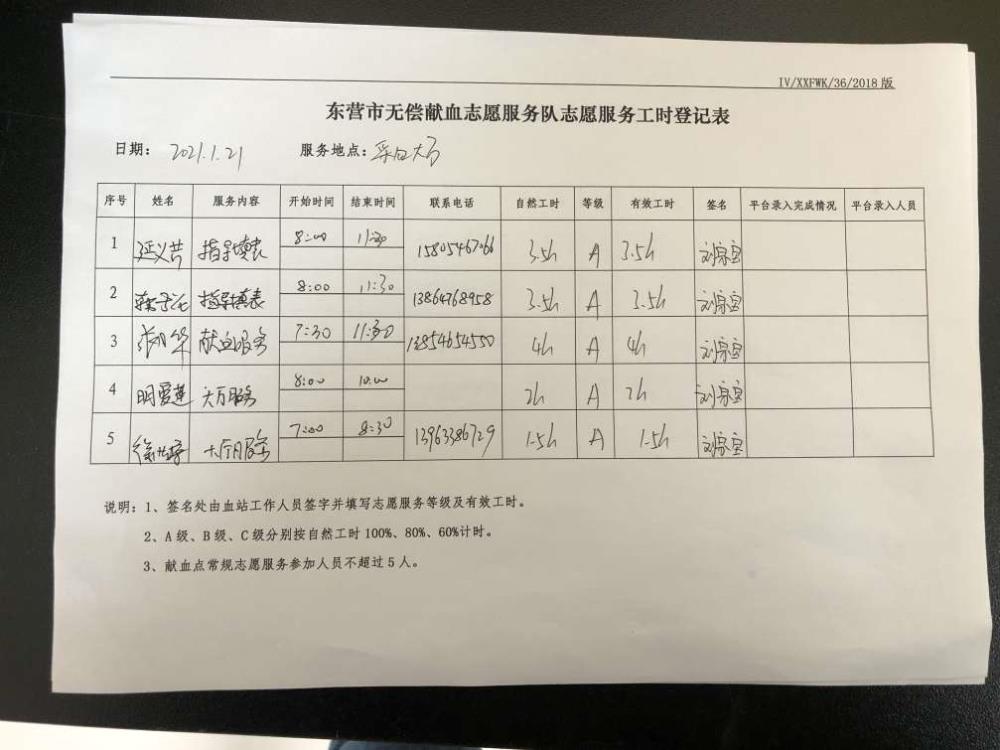 IV/XXFWK/36/2018 版
东营市无偿献血志愿服务队志愿服务工时登记表
日期： 2021.1.21 服务地点：采血大厅
序号 姓名 服务内容 开始时间 结束时间 联系电话 自然工时 等级 有效工时 签名 平台录入完成情况 平台录入人员
1 指导填表 8:00 11:30 15805467066 3.5h A 3.5h
2 指导填表 8:00 11:30 13864768958 3.5h A 3.5h
3 献血服务 7:30 11:30 13854654550 4h A 4h
4 明爱莲 大厅服务 8:00 10:00 2h A 2h
5 大厅服务 7:00 8:30 13963386729 1.5h A 1.5h
说明：1、签名处由血站工作人员签字并填写志愿服务等级及有效工时。
2、A 级、B 级、C 级分别按自然工时 100%、80%、60%计时。
3、献血点常规志愿服务参加人员不超过 5 人。